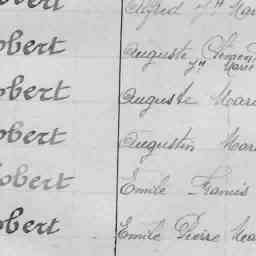 obert Alfred Jh Mar
obert Auguste Clémen
Jh Marie
obert Auguste Mari
obert Augustin Mar
obert Emile Francis
obert Emile Pierre Mar